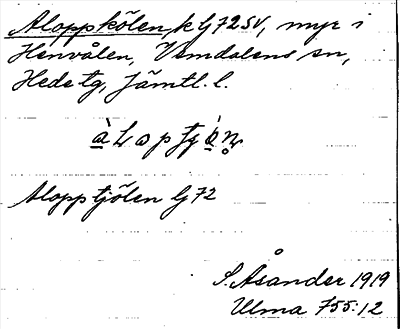 Aloppkölen, k Lj 72 SV, myr i
Henvålen, Vemdalens sn,
Hede tg, Jämtl. l.
Alopptjölen Lj 72
S. Åsander 1919
Ulma 755:12